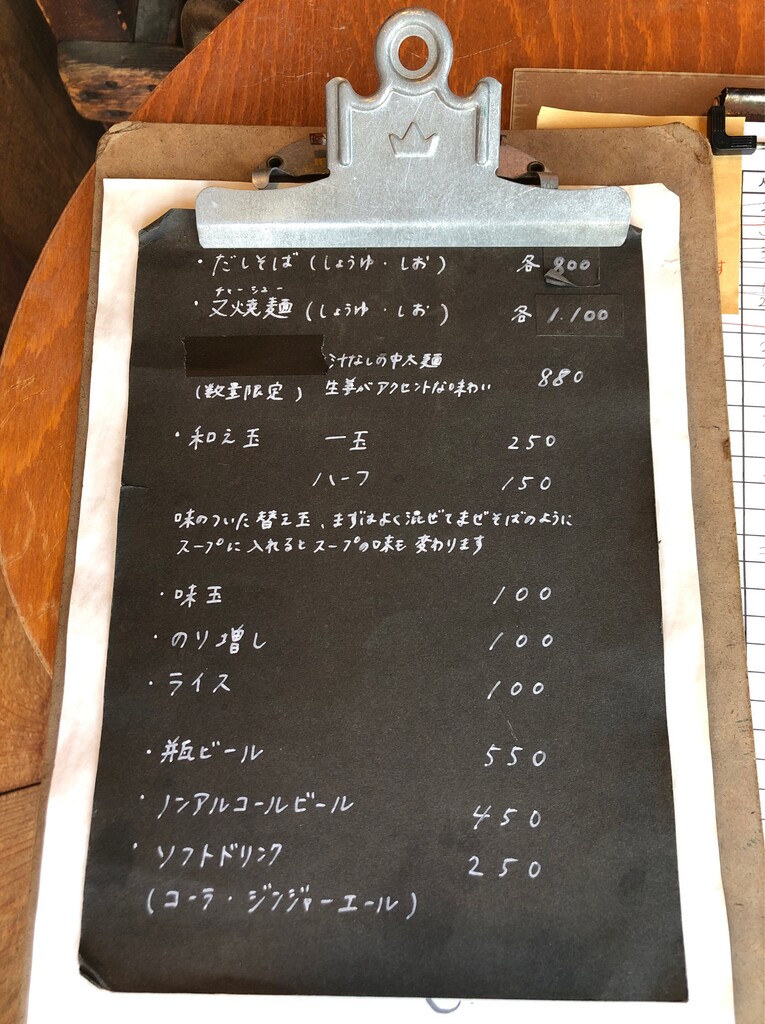 ・だしそば(しょうゆ・しお) 各 800
チャーシュー
・叉焼麺(しょうゆ・しお) 各 1.100
汁なしの中太麺
(数量限定) 生姜がアクセントな味わい 880
・和え玉 一玉 250
ハーフ 150
味のついた替え玉、まずはよく混ぜてまぜそばのように
スープに入れるとスープの味も変わります
・味玉 100
・のり増し 100
・ライス 100
・瓶ビール 550
・ノンアルコールビール 450
・ソフトドリンク 250
(コーラ・ジンジャーエール)